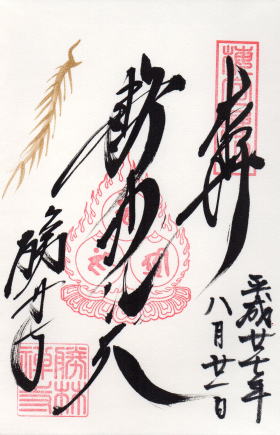 奉拝
平成廿七年
八月廿一日
毘沙門天
勝林寺
勝林
禅寺